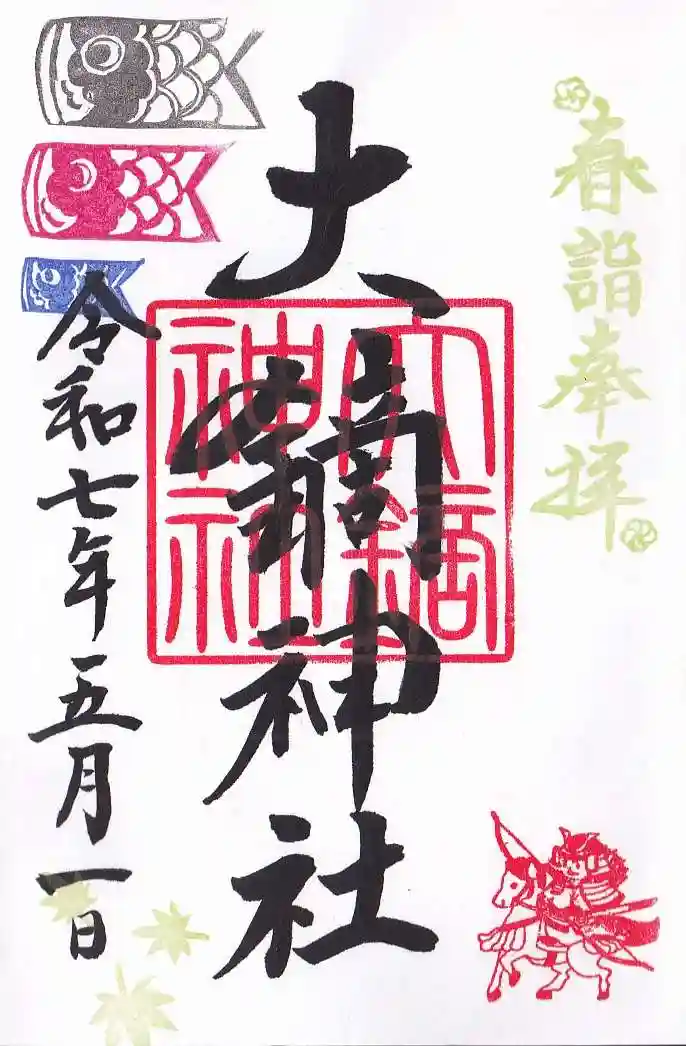 春詣奉拝
大鏑神社
大鏑
神社
令和七年五月一日